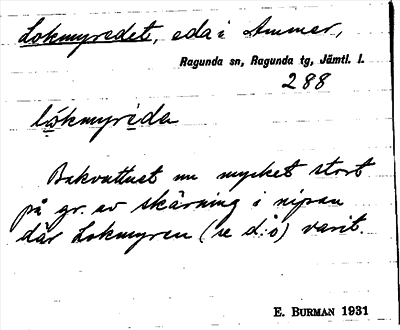 Lokmyredet, eda i Ammer,
Ragunda sn, Ragunda tg, Jämtl. l.
288
lòkmyrida
Bakvattnet nu mycket stort
på gr. av skärning i nipan
där Lokmyren (se d:o) varit.
E. BURMAN 1931